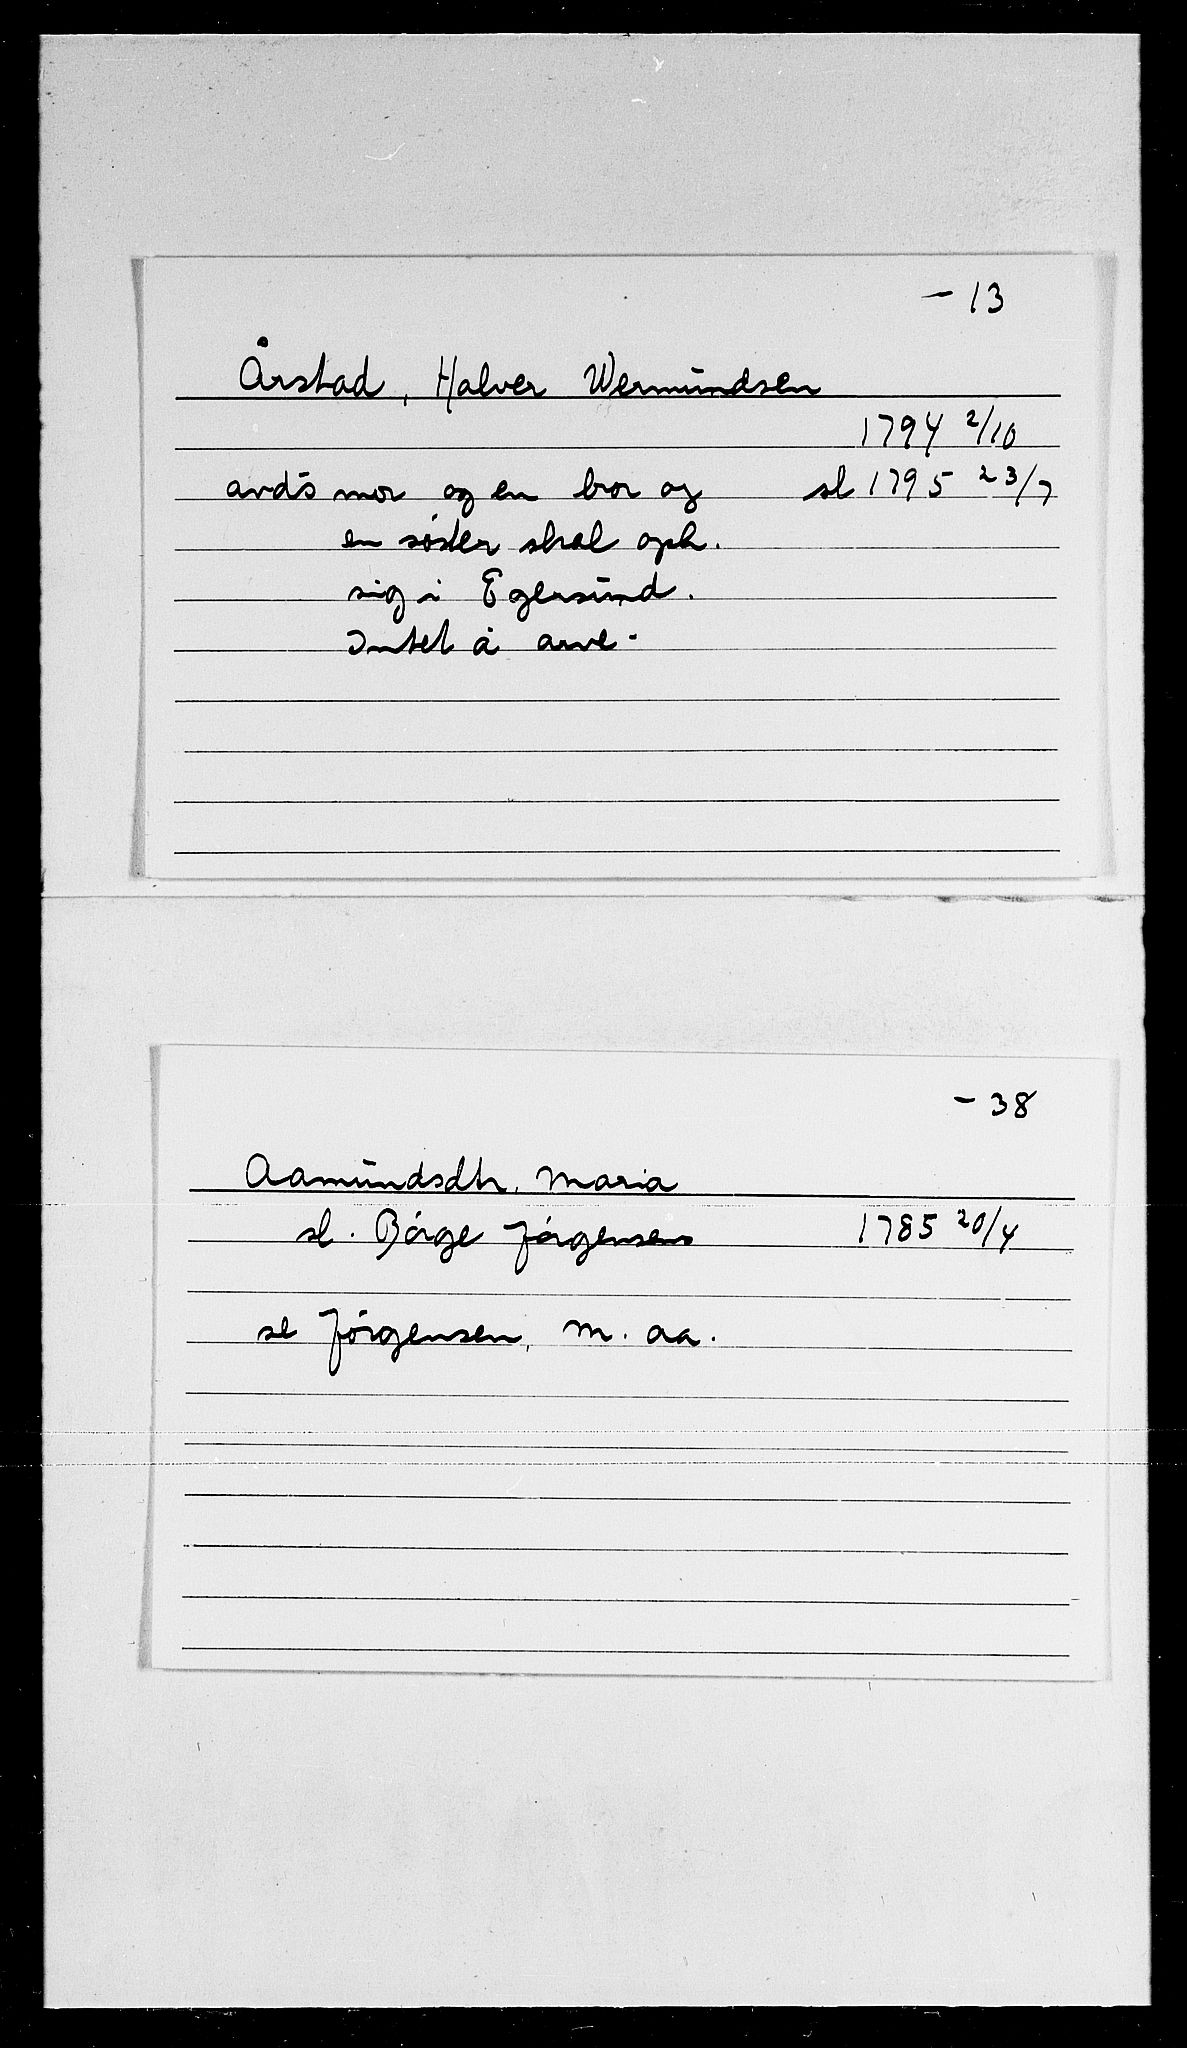 - 13
Årstad, Halver Wermundsen
1794 2/10
avdś mor og en bror og sl 1795 23/7
en søster skal oph.
sig i Egersund.
Intet å arve.
- 38
Aamundsdtr, Maria
sl. Børge Jørgensens 1785 20/4
se Jørgensen, M. Aa.